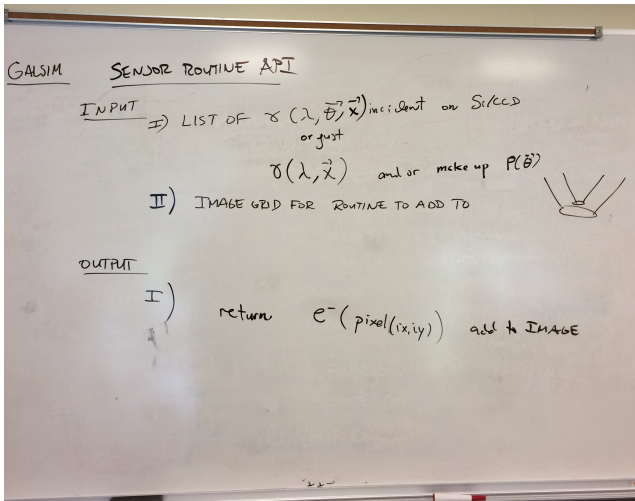 GALSIM SENSOR ROUTINE API
INPUT
I) LIST OF γ (λ, θ⃗, x⃗) incident on Si/CCD
or just
γ(λ, x⃗) and or make up P(θ⃗)
II) IMAGE GRID FOR ROUTINE TO ADD TO
OUTPUT
I)
return e⁻(pixel(ix,iy)) add to IMAGE